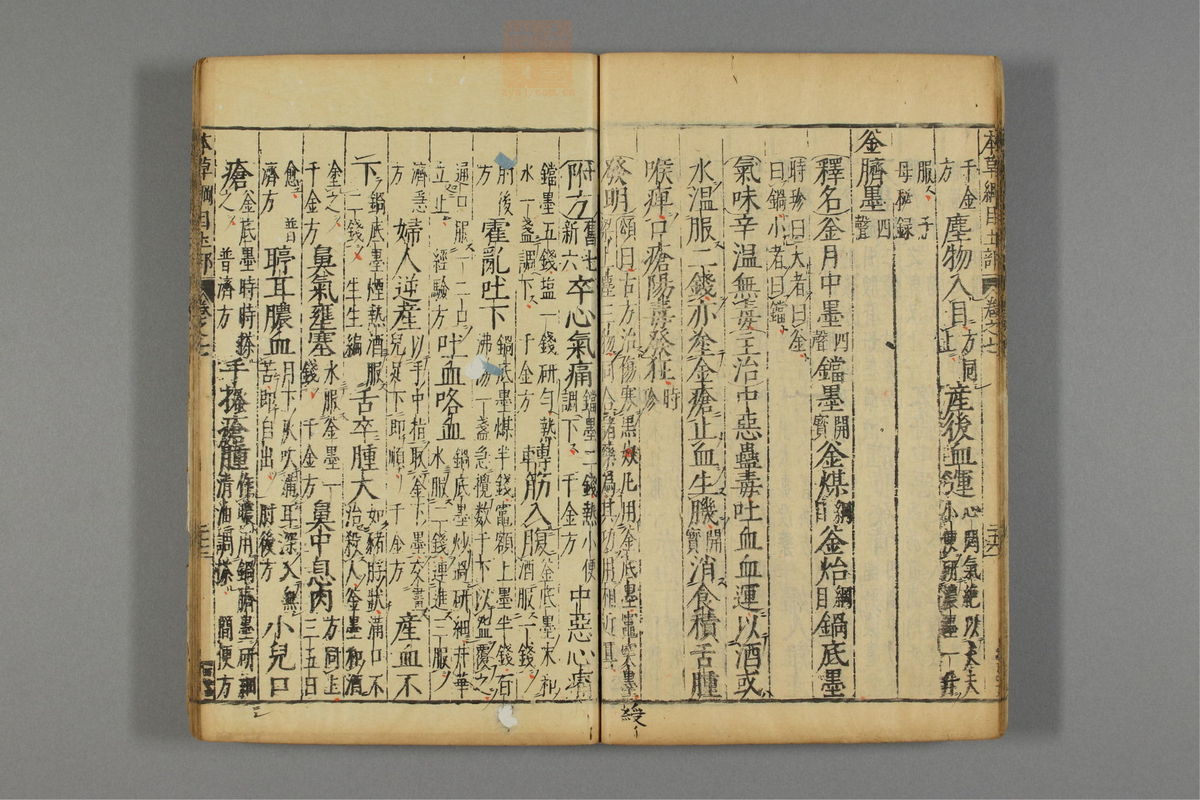 本草綱目土部 卷之七
千金方 塵物入目 方同上 産後血運 心悶氣絶以丈夫小便研濃墨一升
服 子母秘録
釜臍墨 四聲
釋名 釜月中墨 四聲 鐺墨 開寶 釜煤 綱目 釜炲 綱目 鍋底墨
時珍曰大者曰釜曰鍋小者曰鐺
氣味辛温無毒主治中惡蠱毒吐血血運以酒或
水温服二錢亦塗金瘡止血生肌 開寶 消食積舌腫
喉痺口瘡陽毒發狂 時珍
發明 頌曰古方治傷寒黒奴丸用釜底墨竈突墨
附方 舊七新六 卒心氣痛 鐺墨二錢熱小便調下 千金方 中惡心痛
鐺墨五錢塩一錢研匀熱水一盞調下 千金方 轉筋入腹 釜底墨末和酒服一錢
肘後方 霍亂吐下 鍋底墨煤半錢竈額上墨半錢百沸湯一盞急攪数千下以盌覆之
通口服一二口立止 經驗方 吐血咯血 鍋底墨炒過研細井華水服二錢連進三服
濟急方 婦人逆産 以手中指取釜下墨交畫兒足下即順 千金方 産血不
下 鍋底墨煙熱酒服二錢 生生編 舌卒腫大 如猪脬狀滿口不治殺人釜墨和酒
塗之 千金方 鼻氣壅塞 水服釜墨一錢 千金方 鼻中息肉 方同上三五日
愈 普濟方 聤耳膿血 月下灰吹滿耳深入無苦即自出 肘後方 小兒口
瘡 釜底墨時時搽之 普濟方 手搔瘡腫 作膿用鍋臍墨研細清油調搽 簡便方
本草綱目土部 卷之七